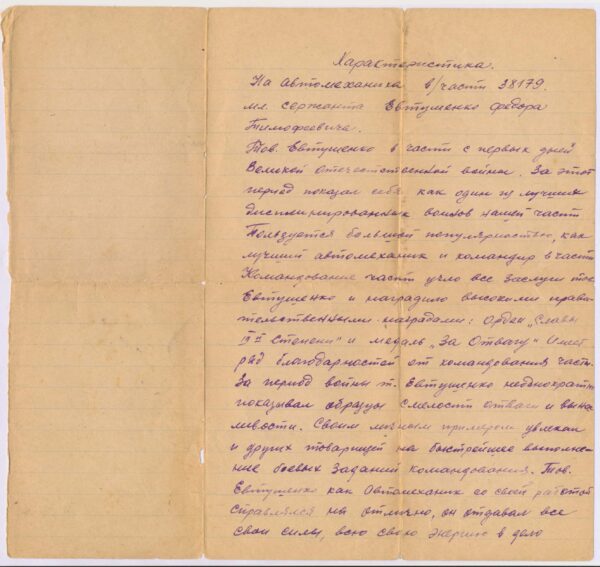 Характеристика.
На автомеханика в/части 38179
мл. сержанта Евтушенко Федора
Тимофеевича.
Тов. Евтушенко в части с первых дней
Великой отечественной войны. За этот
период показал себя как один из лучших
дисциплинированных воинов нашей части
Пользуется большой популярностью, как
лучший автомеханик и командир в части
Командование части учло все заслуги тов.
Евтушенко и наградило высокими прави
тельственными наградами: Орден „Славы
степени" и медаль „За Отвагу" Имеет
ряд благодарностей от командования части.
За период войны т. Евтушенко неоднократно
показывал образцы смелости отваги и вынос
ливости. Своим личным примером увлекал
и других товарищей на быстрейшее выполне-
ние боевых заданий командования. Тов.
Евтушенко как Автомеханик со своей работой
справлялся на отлично, он отдавал все
свои силы, всю свою энергию в дело